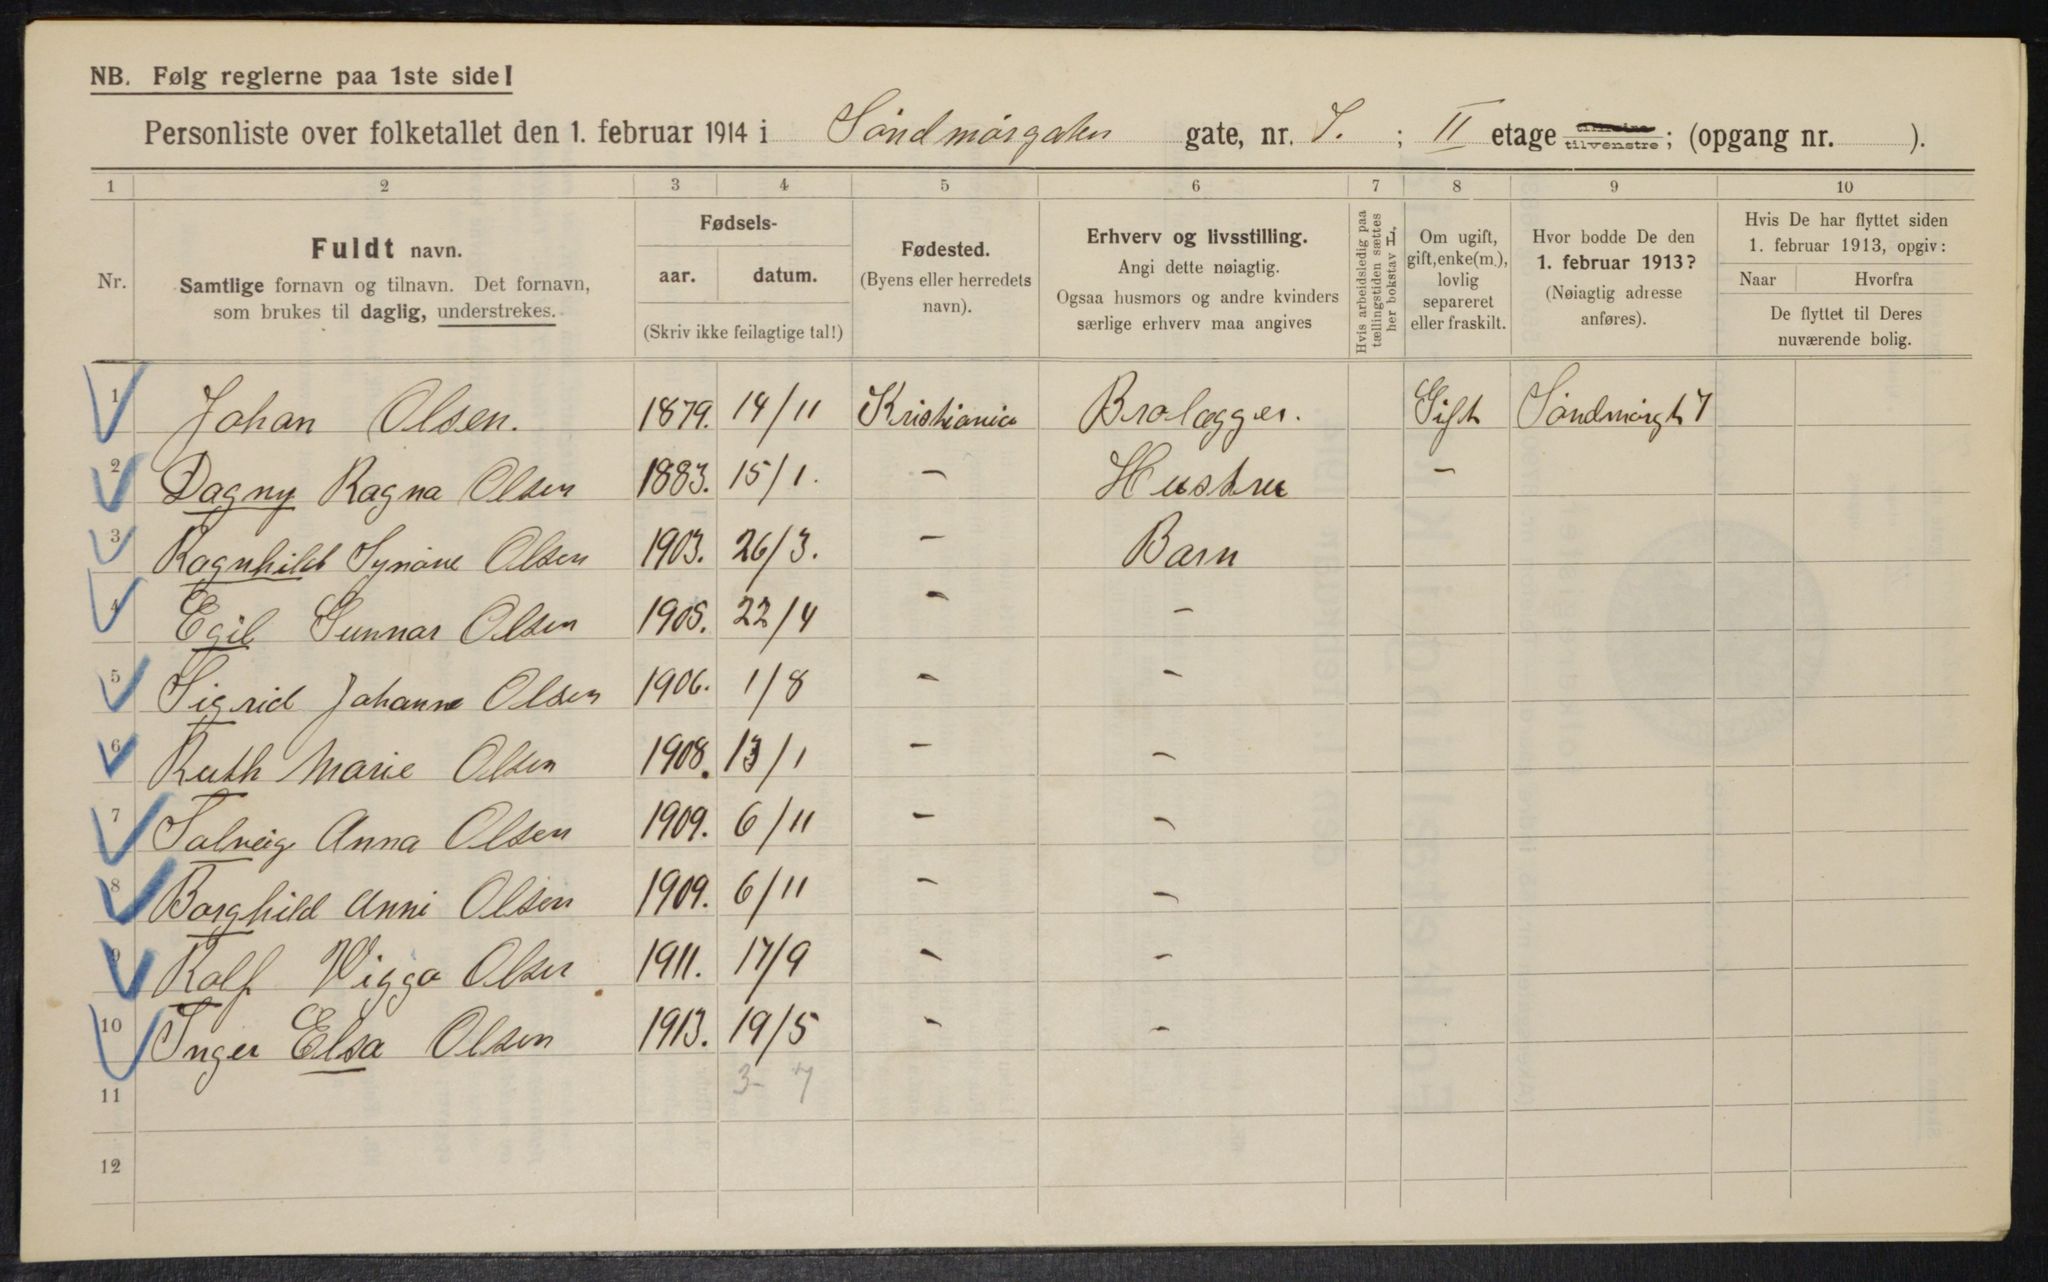 NB. Følg reglerne paa 1ste side!
Personliste over folketallet den 1. februar 1914 i Søndmørgaten gate, nr. 7. ; II etage tilhøire tilvenstre; (opgang nr. ).
1 2 3 4 5 6 7 8 9 10
Nr.
Fuldt navn.
Samtlige fornavn og tilnavn. Det fornavn,
som brukes til daglig, understrekes.
Fødsels-
aar. datum.
(Skriv ikke feilagtige tal!)
Fødested.
(Byens eller herredets
navn).
Erhverv og livsstilling.
Angi dette nøiagtig.
Ogsaa husmors og andre kvinders
særlige erhverv maa angives
Hvis arbeidsledig paa
tællingstiden sættes
her bokstav L.
Om ugift,
gift, enke(m.),
lovlig
separeret
eller fraskilt.
Hvor bodde De den
1. februar 1913?
(Nøiagtig adresse
anføres).
Hvis De har flyttet siden
1. februar 1913, opgiv:
Naar Hvorfra
De flyttet til Deres
nuværende bolig.
1 Johan Olsen. 1879. 14/11 Kristiania Brolægger. Gift Søndmørgt 7
2 Dagny Ragna Olsen 1883. 15/1. – Hustru –
3 Ragnhild Synøve Olsen 1903. 26/3. – Barn
4 Egil Gunnar Olsen 1905. 22/4 – –
5 Sigrid Johanne Olsen 1906. 1/8 – –
6 Ruth Marie Olsen 1908. 13/1 – –
7 Solveig Anna Olsen 1909. 6/11 – –
8 Borghild Anni Olsen 1909. 6/11 – –
9 Rolf Viggo Olsen 1911. 17/9 – –
10 Inger Elsa Olsen 1913. 19/5 – –
3 – 7
11
12